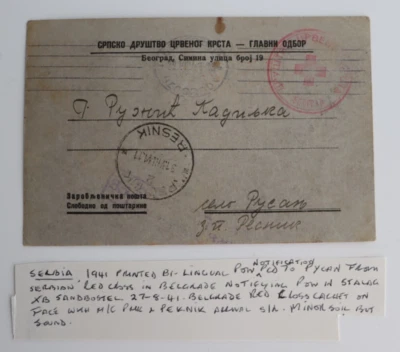 СРПСКО ДРУШТВО ЦРВЕНОГ КРСТА — ГЛАВНИ ОДБОР
Београд, Симина улица број 19
Г. Ружић
RESNIK
Заробљеничка пошта
Слободно од поштарине
село Русањ
з.п. Ресник
NOTIFICATION
SERBIA 1941 PRINTED BI-LINGUAL POW PCD TO PYCAN FROM
SERBIAN RED CROSS IN BELGRADE NOTIFYING POW IN STALAG
XB SANDBOSTEL 27-8-41. BELGRADE RED CROSS CACHET ON
FACE WITH M/C PMK & PEKNIK ARRIVAL S/R. MINOR SOIL BUT
SOUND.